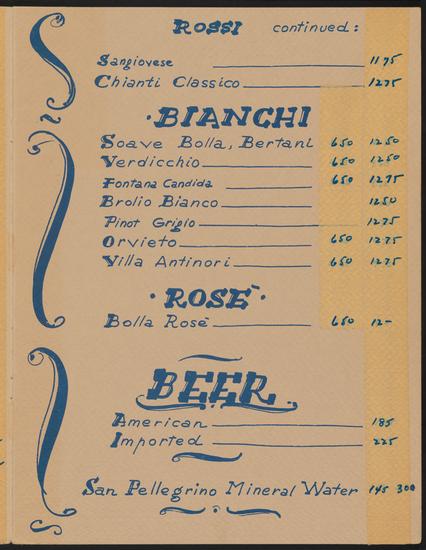 ROSSI continued:
Sangiovese 1175
Chianti Classico 1275
·BIANCHI
Soave Bolla, Bertani 650 1250
Verdicchio 650 1250
Fontana Candida 650 1275
Brolio Bianco 1250
Pinot Grigio 1275
Orvieto 650 1275
Villa Antinori 650 1275
·ROSÈ·
Bolla Rosè 650 12-
BEER
American 185
Imported 225
San Pellegrino Mineral Water 145 300